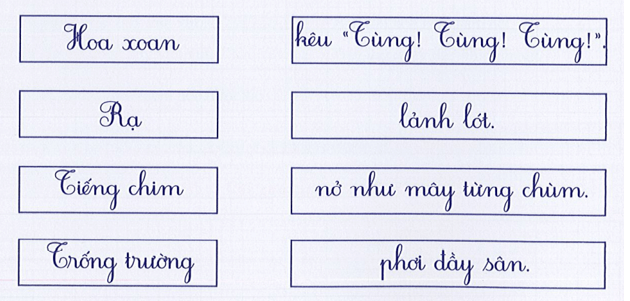 Hoa xoan
kêu “Tùng! Tùng! Tùng!”.
Rạ
lảnh lót.
Tiếng chim
nở như mây từng chùm.
Trống trường
phơi đầy sân.